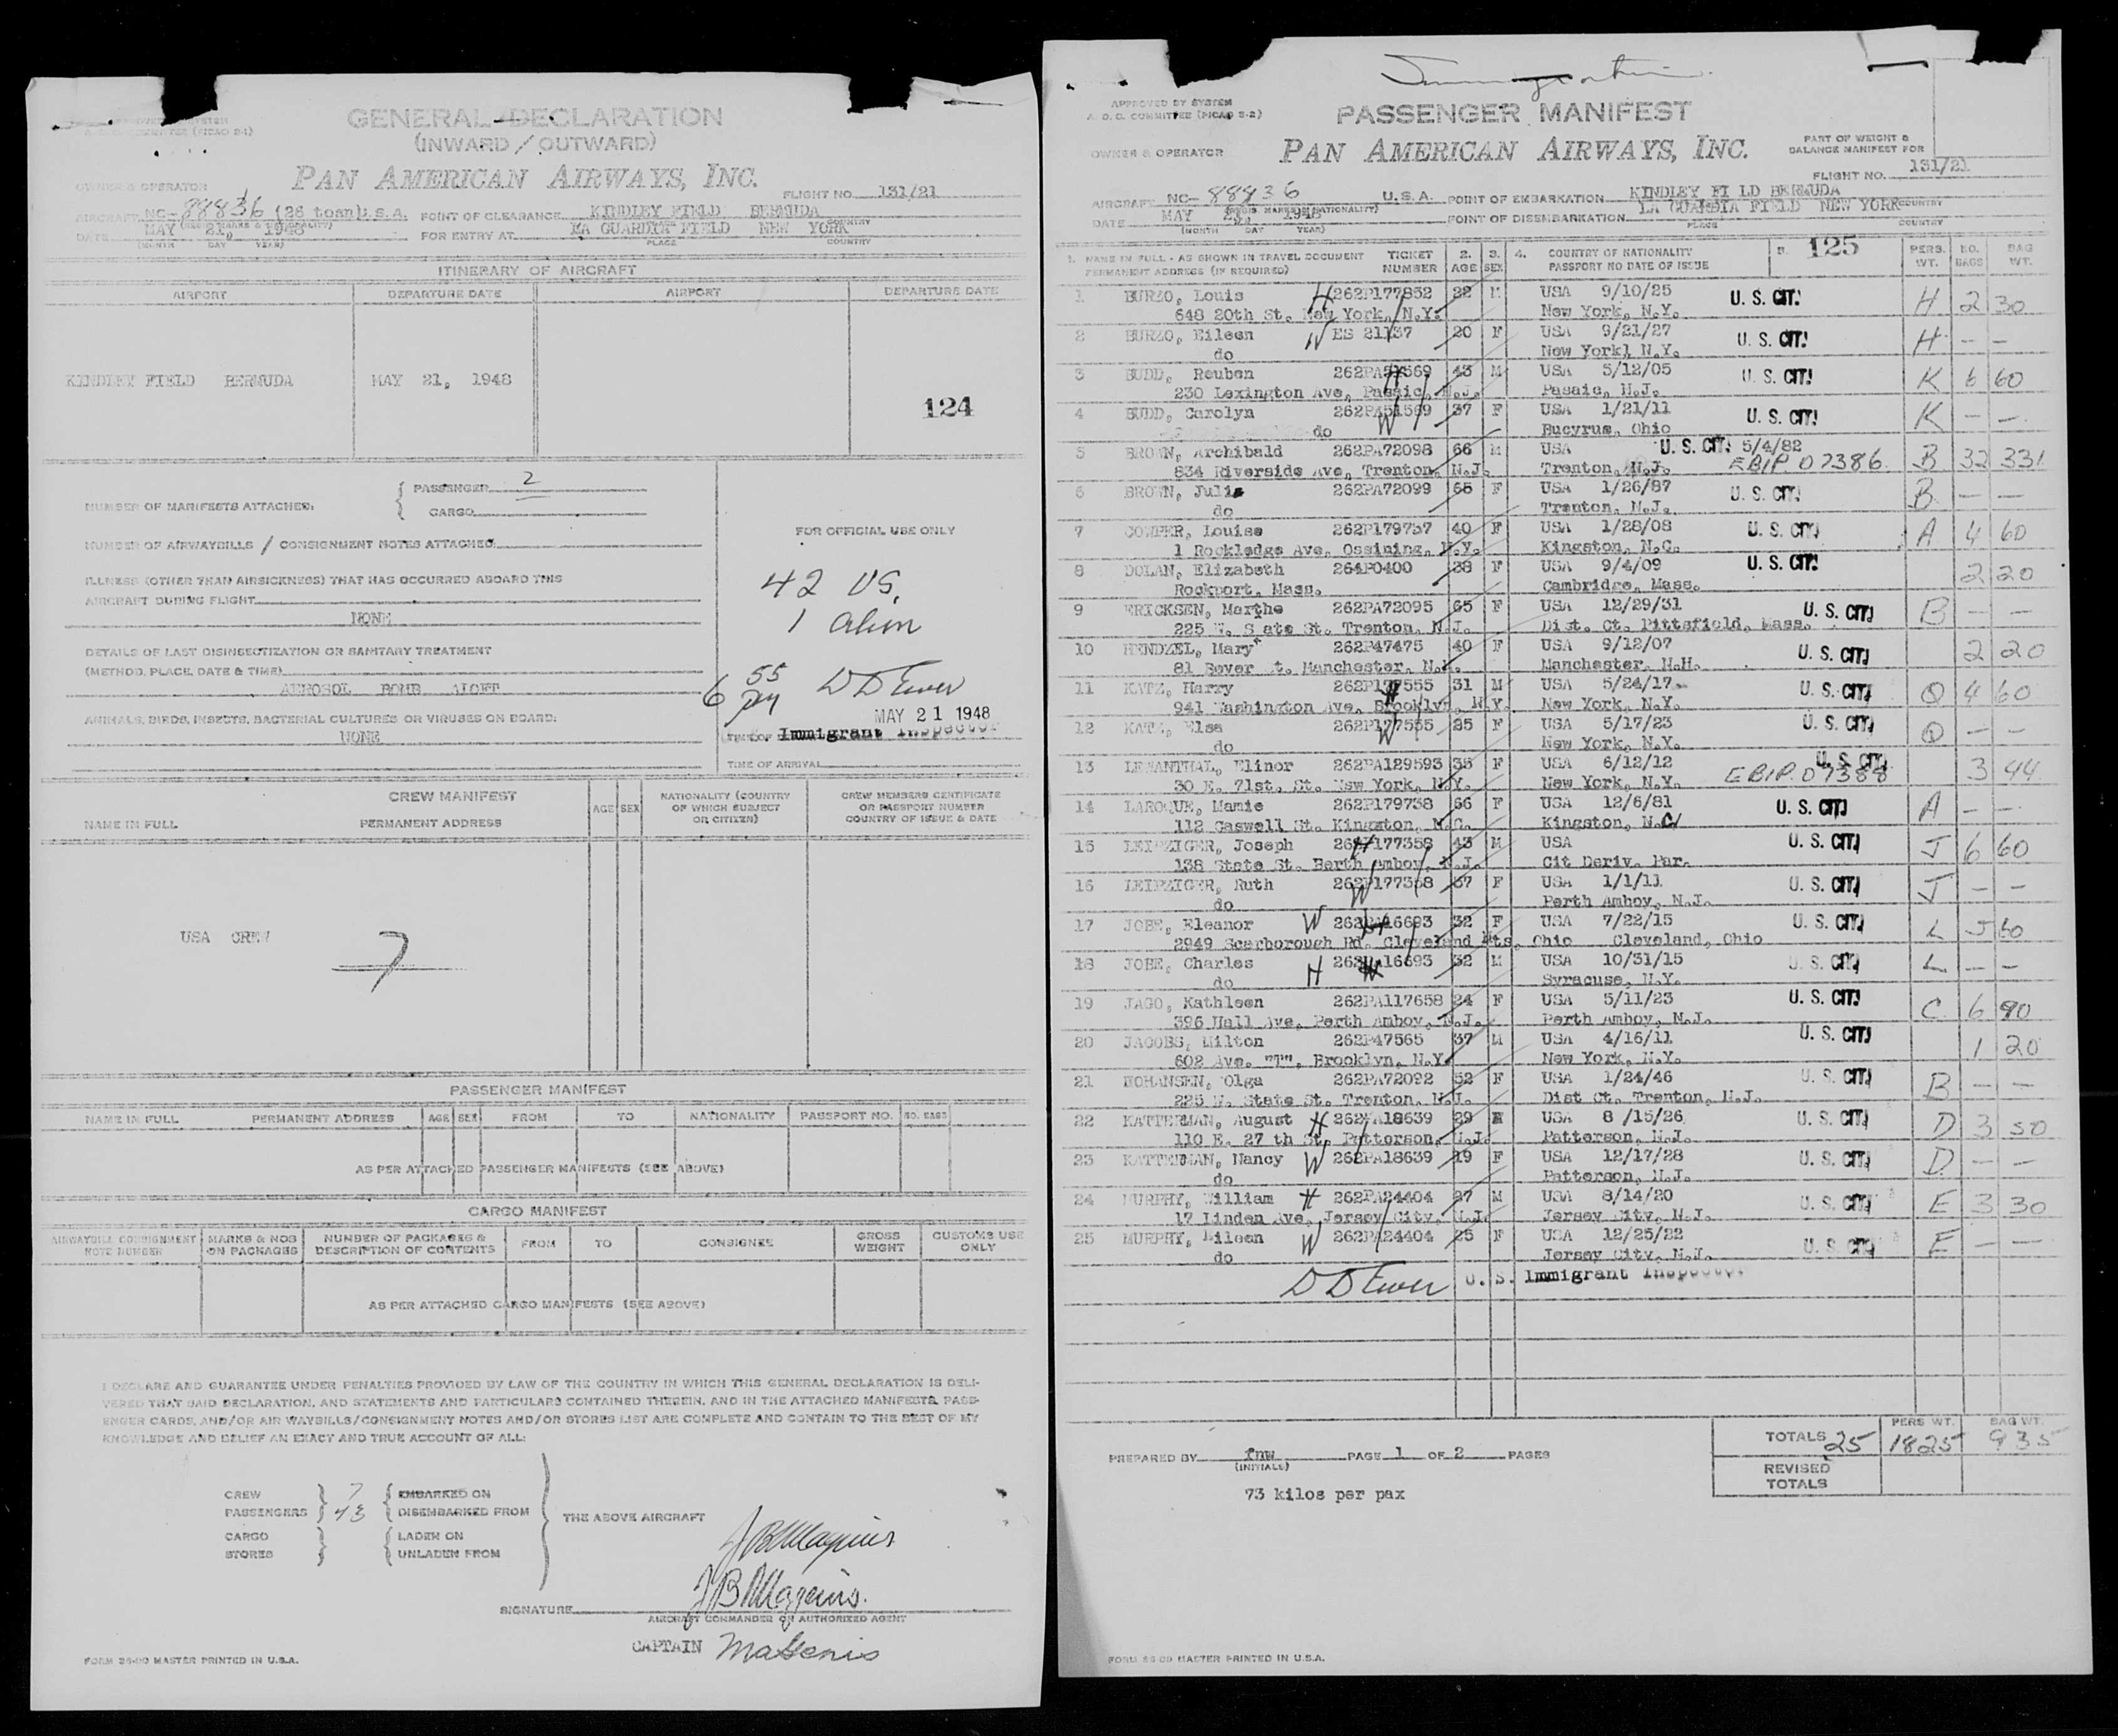 GENERAL DECLARATION
(INWARD / OUTWARD)
PAN AMERICAN AIRWAYS, INC.
OWNER & OPERATOR
FLIGHT NO. 131/21
AIRCRAFT NC-88836 (26 toan) U.S.A. POINT OF CLEARANCE KINDLEY FIELD BERMUDA
DATE MAY 21, 1948 FOR ENTRY AT LA GUARDIA FIELD NEW YORK
(MONTH DAY YEAR) PLACE COUNTRY
ITINERARY OF AIRCRAFT
AIRPORT DEPARTURE DATE AIRPORT DEPARTURE DATE
KINDLEY FIELD BERMUDA MAY 21, 1948
124
NUMBER OF MANIFESTS ATTACHED: PASSENGER 2
CARGO
NUMBER OF AIRWAYBILLS / CONSIGNMENT NOTES ATTACHED
ILLNESS (OTHER THAN AIRSICKNESS) THAT HAS OCCURRED ABOARD THIS
AIRCRAFT DURING FLIGHT
NONE
DETAILS OF LAST DISINSECTIZATION OR SANITARY TREATMENT
(METHOD, PLACE, DATE & TIME)
AEROSOL BOMB ALOFT
ANIMALS, BIRDS, INSECTS, BACTERIAL CULTURES OR VIRUSES ON BOARD:
NONE
FOR OFFICIAL USE ONLY
42 US.
1 Alien
6 55 PM D D Ewer
MAY 21 1948
Immigrant Inspector
TIME OF ARRIVAL
CREW MANIFEST
NAME IN FULL PERMANENT ADDRESS AGE SEX NATIONALITY (COUNTRY OF WHICH SUBJECT OR CITIZEN) CREW MEMBERS CERTIFICATE OR PASSPORT NUMBER COUNTRY OF ISSUE & DATE
USA CREW 7
PASSENGER MANIFEST
NAME IN FULL PERMANENT ADDRESS AGE SEX FROM TO NATIONALITY PASSPORT NO. NO. BAGS
AS PER ATTACHED PASSENGER MANIFESTS (SEE ABOVE)
CARGO MANIFEST
AIRWAYBILL CONSIGNMENT NOTE NUMBER MARKS & NOS ON PACKAGES NUMBER OF PACKAGES & DESCRIPTION OF CONTENTS FROM TO CONSIGNEE GROSS WEIGHT CUSTOMS USE ONLY
AS PER ATTACHED CARGO MANIFESTS (SEE ABOVE)
I DECLARE AND GUARANTEE UNDER PENALTIES PROVIDED BY LAW OF THE COUNTRY IN WHICH THIS GENERAL DECLARATION IS DELI-
VERED THAT SAID DECLARATION, AND STATEMENTS AND PARTICULARS CONTAINED THEREIN, AND IN THE ATTACHED MANIFESTS, PASS-
ENGER CARDS, AND/OR AIR WAYBILLS/CONSIGNMENT NOTES AND/OR STORES LIST ARE COMPLETE AND CONTAIN TO THE BEST OF MY
KNOWLEDGE AND BELIEF AN EXACT AND TRUE ACCOUNT OF ALL:
CREW 7 EMBARKED ON
PASSENGERS 43 DISEMBARKED FROM THE ABOVE AIRCRAFT
CARGO LADEN ON
STORES UNLADEN FROM
SIGNATURE
AIRCRAFT COMMANDER OR AUTHORIZED AGENT
CAPTAIN
FORM 26-00 MASTER PRINTED IN U.S.A.
Immigration
APPROVED BY SYSTEM
A. O. C. COMMITTEE (PICAO S-2)
PASSENGER MANIFEST
OWNER & OPERATOR PAN AMERICAN AIRWAYS, INC.
PART OF WEIGHT &
BALANCE MANIFEST FOR
FLIGHT NO. 131/21
AIRCRAFT NC-88836 U.S.A. POINT OF EMBARKATION KINDLEY FI LD BERMUDA
DATE MAY 21, 1948 POINT OF DISEMBARKATION LA GUARDIA FIELD NEW YORK
(MONTH DAY YEAR) PLACE COUNTRY
1. NAME IN FULL - AS SHOWN IN TRAVEL DOCUMENT PERMANENT ADDRESS (IF REQUIRED) TICKET NUMBER 2. AGE 3. SEX 4. COUNTRY OF NATIONALITY PASSPORT NO DATE OF ISSUE 5. 125 PERS. WT. NO. BAGS BAG WT.
1 BURZO, Louis H 262P177852 22 M USA 9/10/25 U. S. CIT. H 2 30
648 20th St. New York, N.Y. New York, N.Y.
2 BURZO, Eileen W ES 21137 20 F USA 9/21/27 U. S. CIT. H - -
do New York, N.Y.
3 BUDD, Reuben 262PA51569 43 M USA 5/12/05 U. S. CIT. K 6 60
230 Lexington Ave, Passaic, N.J. Pasaic, N.J.
4 BUDD, Carolyn 262PA51569 37 F USA 1/21/11 U. S. CIT. K - -
do Bucyrus, Ohio
5 BROWN, Archibald 262PA72098 66 M USA U. S. CIT. 5/4/82 B 32 331
834 Riverside Ave, Trenton, N.J. Trenton, N.J. EBIP 07386
6 BROWN, Julia 262PA72099 65 F USA 1/26/87 U. S. CIT. B - -
do Trenton, N.J.
7 Louise 262P179757 40 F USA 1/28/08 U. S. CIT. A 4 60
1 Rockledge Ave, Ossining, N.Y. Kingston, N.C.
8 DOLAN, Elizabeth 264P0400 38 F USA 9/4/09 U. S. CIT. 2 20
Rockport, Mass. Cambridge, Mass.
9 ERICKSEN, Marthe 262PA72095 65 F USA 12/29/31 U. S. CIT. B - -
225 W. S ate St. Trenton, N.J. Dist. Ct. Pittsfield, Mass.
10 HENDZEL, Mary 262P47475 40 F USA 9/12/07 U. S. CIT. 2 20
81 Bever t. Manchester, N.H. Manchester, N.H.
11 KATZ, Harry 262P177555 31 M USA 5/24/17 U. S. CIT. Q 4 60
941 Washington Ave, Brooklyn, N.Y. New York, N.Y.
12 KATZ, Elsa 262P177555 25 F USA 5/17/23 U. S. CIT. Q - -
do New York, N.Y.
13 LEMANTHAL, Elinor 262PA129593 35 F USA 6/12/12 U. S. CIT. 3 44
30 E. 71st. St. New York, N.Y. New York, N.Y. EBIP.07388
14 LAROQUE, Mamie 262P179738 66 F USA 12/6/81 U. S. CIT. A - -
112 Caswell St. Kingston, N.C. Kingston, N.C.
15 LEIPZIGER, Joseph 262P177358 43 M USA U. S. CIT. J 6 60
138 State St. Perth Amboy, N.J. Cit Deriv. Par.
16 LEIPZIGER, Ruth 262P177358 37 F USA 1/1/11 U. S. CIT. J - -
do Perth Amboy, N.J.
17 JOBE, Eleanor W 262PA16693 32 F USA 7/22/15 U. S. CIT. L 5 60
2949 Scarborough Rd. Cleveland Hts, Ohio Cleveland, Ohio
18 JOBE, Charles H 262PA16693 32 M USA 10/31/15 U. S. CIT. L - -
do Syracuse, N.Y.
19 JAGO, Kathleen 262PA117658 24 F USA 5/11/23 U. S. CIT. C 6 90
396 Hall Ave, Perth Amboy, N.J. Perth Amboy, N.J.
20 JACOBS, Milton 262P47565 37 M USA 4/16/11 U. S. CIT. 1 20
602 Ave. "T", Brooklyn, N.Y. New York, N.Y.
21 Olga 262PA72092 52 F USA 1/24/46 U. S. CIT. B - -
225 W. State St. Trenton, N.J. Dist Ct. Trenton, N.J.
22 KATTERMAN, August H 262PA18639 29 M USA 8 /15/26 U. S. CIT. D 3 50
110 E. 27 th St, Patterson, N.J. Patterson, N.J.
23 KATTERMAN, Nancy W 262PA18639 19 F USA 12/17/28 U. S. CIT. D - -
do Patterson, N.J.
24 MURPHY, William H 262PA24404 27 M USA 8/14/20 U. S. CIT. E 3 30
17 Linden Ave, Jersey City, N.J. Jersey City, N.J.
25 MURPHY, Eileen W 262PA24404 25 F USA 12/25/22 U. S. CIT. E - -
do Jersey City, N.J.
D D Ewer U. S. Immigrant Inspector
TOTALS 25 PERS WT. 1825 BAG WT. 935
REVISED TOTALS
PREPARED BY fnw PAGE 1 OF 2 PAGES
(INITIALS)
73 kilos per pax
FORM 26-00 MASTER PRINTED IN U.S.A.